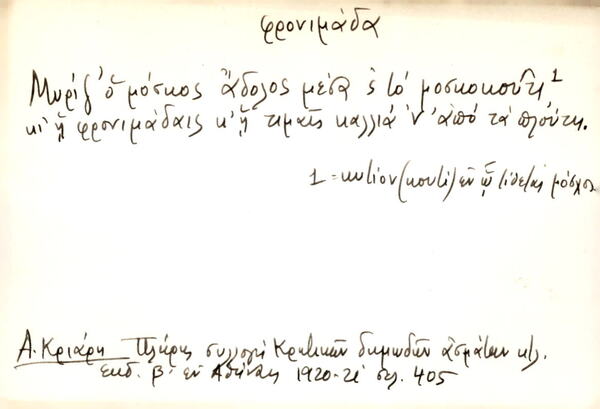 φρονιμάδα
Μυρίζ' ὁ μόσκος ἄδολος μέσα ς τό μοσκοκούτι 1
κι' ᾑ φρονιμάδαις κ' ᾑ τιμαῖς καλλιά 'ν' ἀπό τά πλούτη.
1 = κυτίον (κουτί) ἐν ᾧ τίθεται μόσχος
Α. Κριάρη Πλήρης συλλογή Κρητικῶν δημωδῶν ᾀσμάτων κτλ.
Ἐκδ. Β' ἐν Ἀθήναις 1920-21 σελ. 405